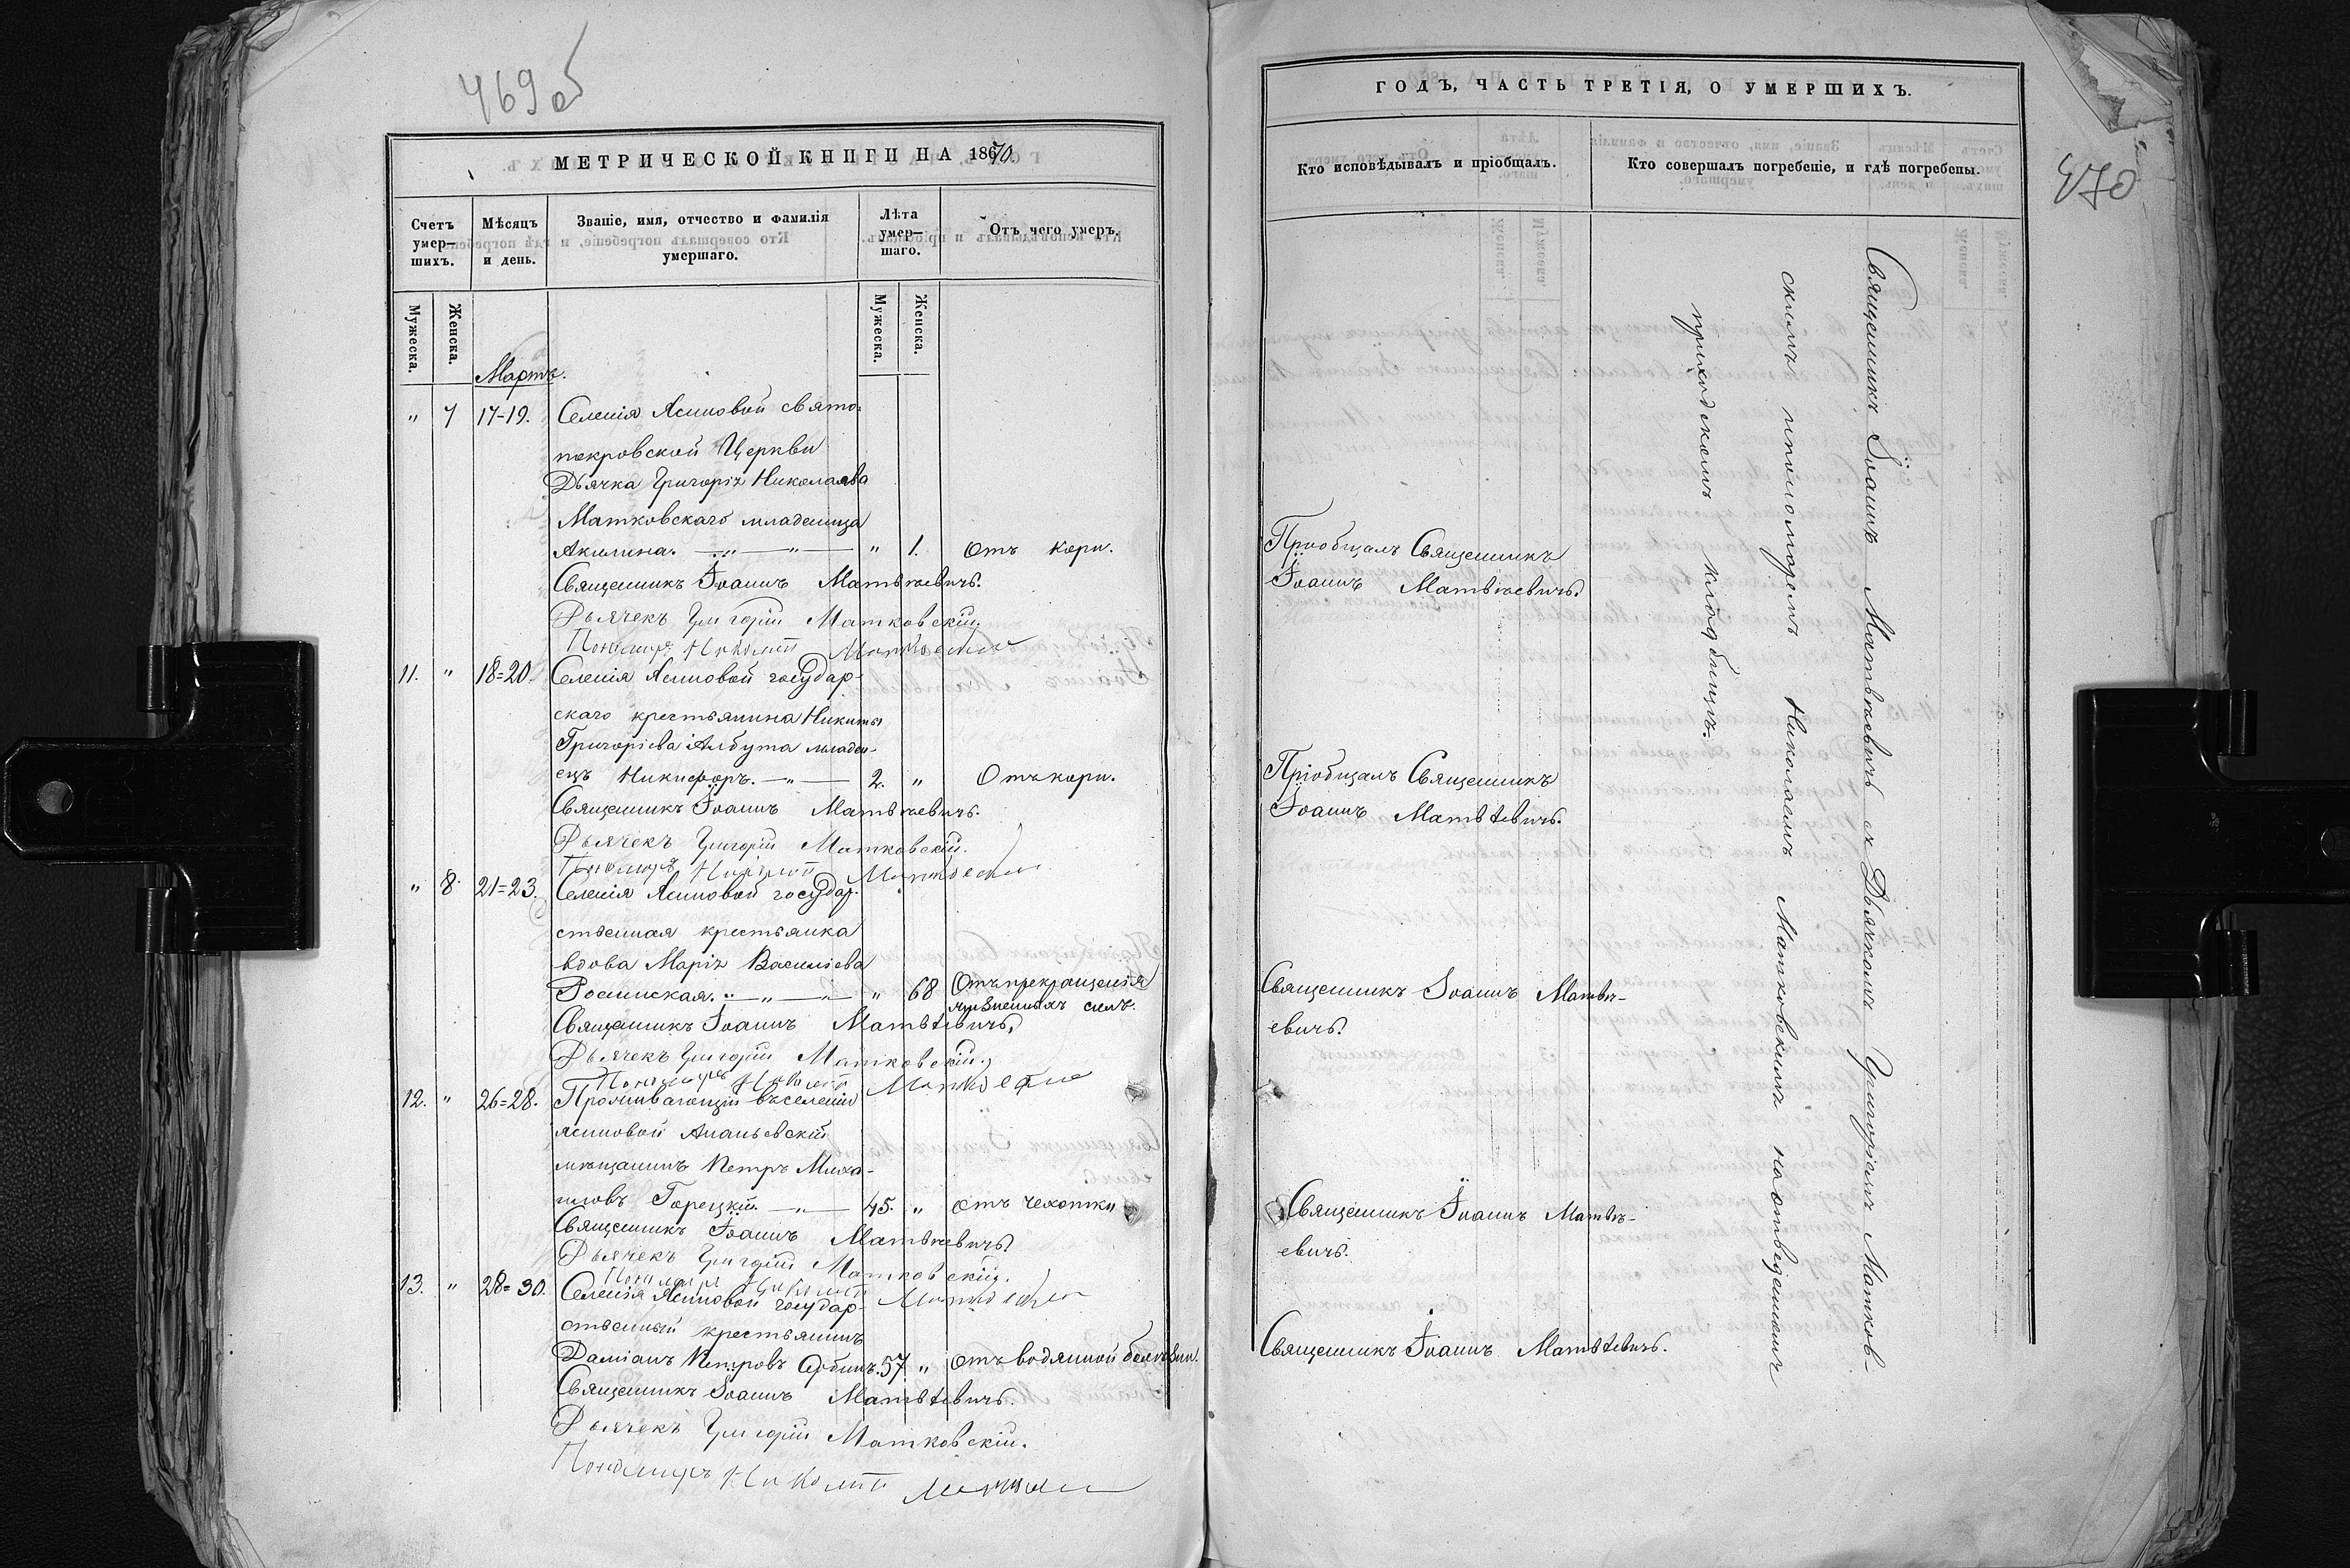 469 об
МЕТРИЧЕСКОЙ КНИГИ НА 1870.
Счетъ умер—шихъ.
Мѣсяцъ и день.
Званіе, имя, отчество и фамилія умершаго.
Лѣта умер—шаго.
Отъ чего умеръ.
Мужеска.
Женска.
Мужеска.
Женска.
Мартъ.
" 7 17-19. Селенія Ясиновой свято-
покровской Церкви
Дьячка Григорія Николаева
Матковскаго младеница
Акилина. " 1. Отъ кори.
Священникъ Іоаннъ Матвѣевичъ.
Дьячекъ Григорій Матковскій.
Пономарь Николай Матковскій
11. " 18=20. Селенія Ясиновой государ-
скаго крестьянина Никиты
Григоріева Албута младен-
ецъ Никифоръ. 2. " Отъ кори.
Священникъ Іоаннъ Матвѣевичъ.
Дьячекъ Григорій Матковскій.
Пономарь Николай Матковскій
" 8. 21=23. Селенія Ясиновой государ-
ственная крестьянка
вдова Марія Василіева
Росинская. " 68 Отъ прекращенія
жизненныхъ силъ.
Священникъ Іоаннъ Матвѣевичъ.
Дьячекъ Григорій Матковскій.
Пономарь Николай Матковскій
12. " 26=28. Проживающій въ селеніи
Ясиновой Ананьевскій
мѣщанинъ Петръ Миха-
иловъ Горецкій. 45. " Отъ чехотки
Священникъ Іоаннъ Матвѣевичъ.
Дьячекъ Григорій Матковскій.
Пономарь Николай Матковскій
13. " 28=30. Селенія Ясиновой государ-
ственный крестьянинъ
Даміанъ Петровъ 57 " Отъ водянной болѣзни.
Священникъ Іоаннъ Матвѣевичъ.
Дьячекъ Григорій Матковскій.
Пономарь Николай
ГОДЪ, ЧАСТЬ ТРЕТІЯ, О УМЕРШИХЪ.
470
Кто исповѣдывалъ и пріобщалъ.
Кто совершалъ погребеніе, и гдѣ погребены.
Пріобщалъ Священникъ
Іоаннъ Матвѣевичъ.
Пріобщалъ Священникъ
Іоаннъ Матвѣевичъ.
Священникъ Іоаннъ Матвѣ-
евичъ.
Священникъ Іоаннъ Матвѣ-
евичъ.
Священникъ Іоаннъ Матвѣевичъ.
Священникъ Іоаннъ Матвѣевичъ съ Дьячкомъ Григоріемъ Матков-
скимъ и пономаремъ Николаемъ Матковскимъ на отведенномъ
приходскомъ кладбищѣ.